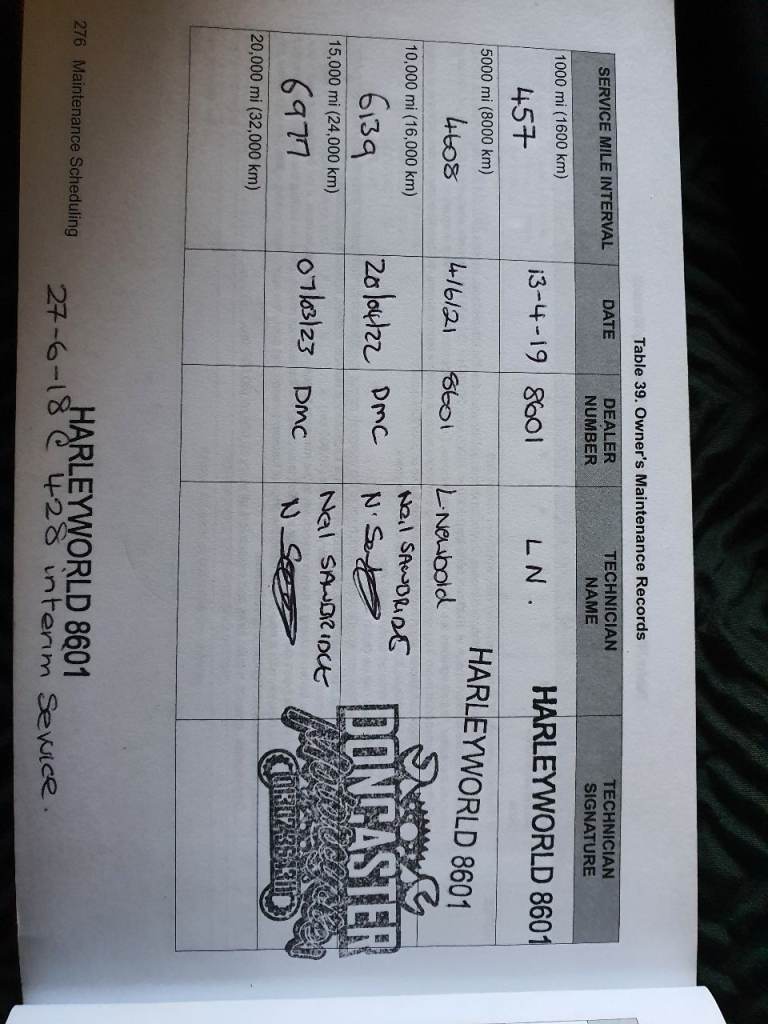 Table 39. Owner's Maintenance Records
SERVICE MILE INTERVAL DATE DEALER NUMBER TECHNICIAN NAME TECHNICIAN SIGNATURE
1000 mi (1600 km)
457 13-4-19 8601 LN. HARLEYWORLD 8601
5000 mi (8000 km)
4608 4/6/21 8601 L.Newbold HARLEYWORLD 8601
10,000 mi (16,000 km)
6139 20/04/22 DMC Neil SANDRIDGE
N.
DONCASTER
15,000 mi (24,000 km)
6977 07/03/23 DMC Neil SANDRIDGE
N
20,000 mi (32,000 km)
276 Maintenance Scheduling
HARLEYWORLD 8601
27-6-18 @ 428 interim Service.